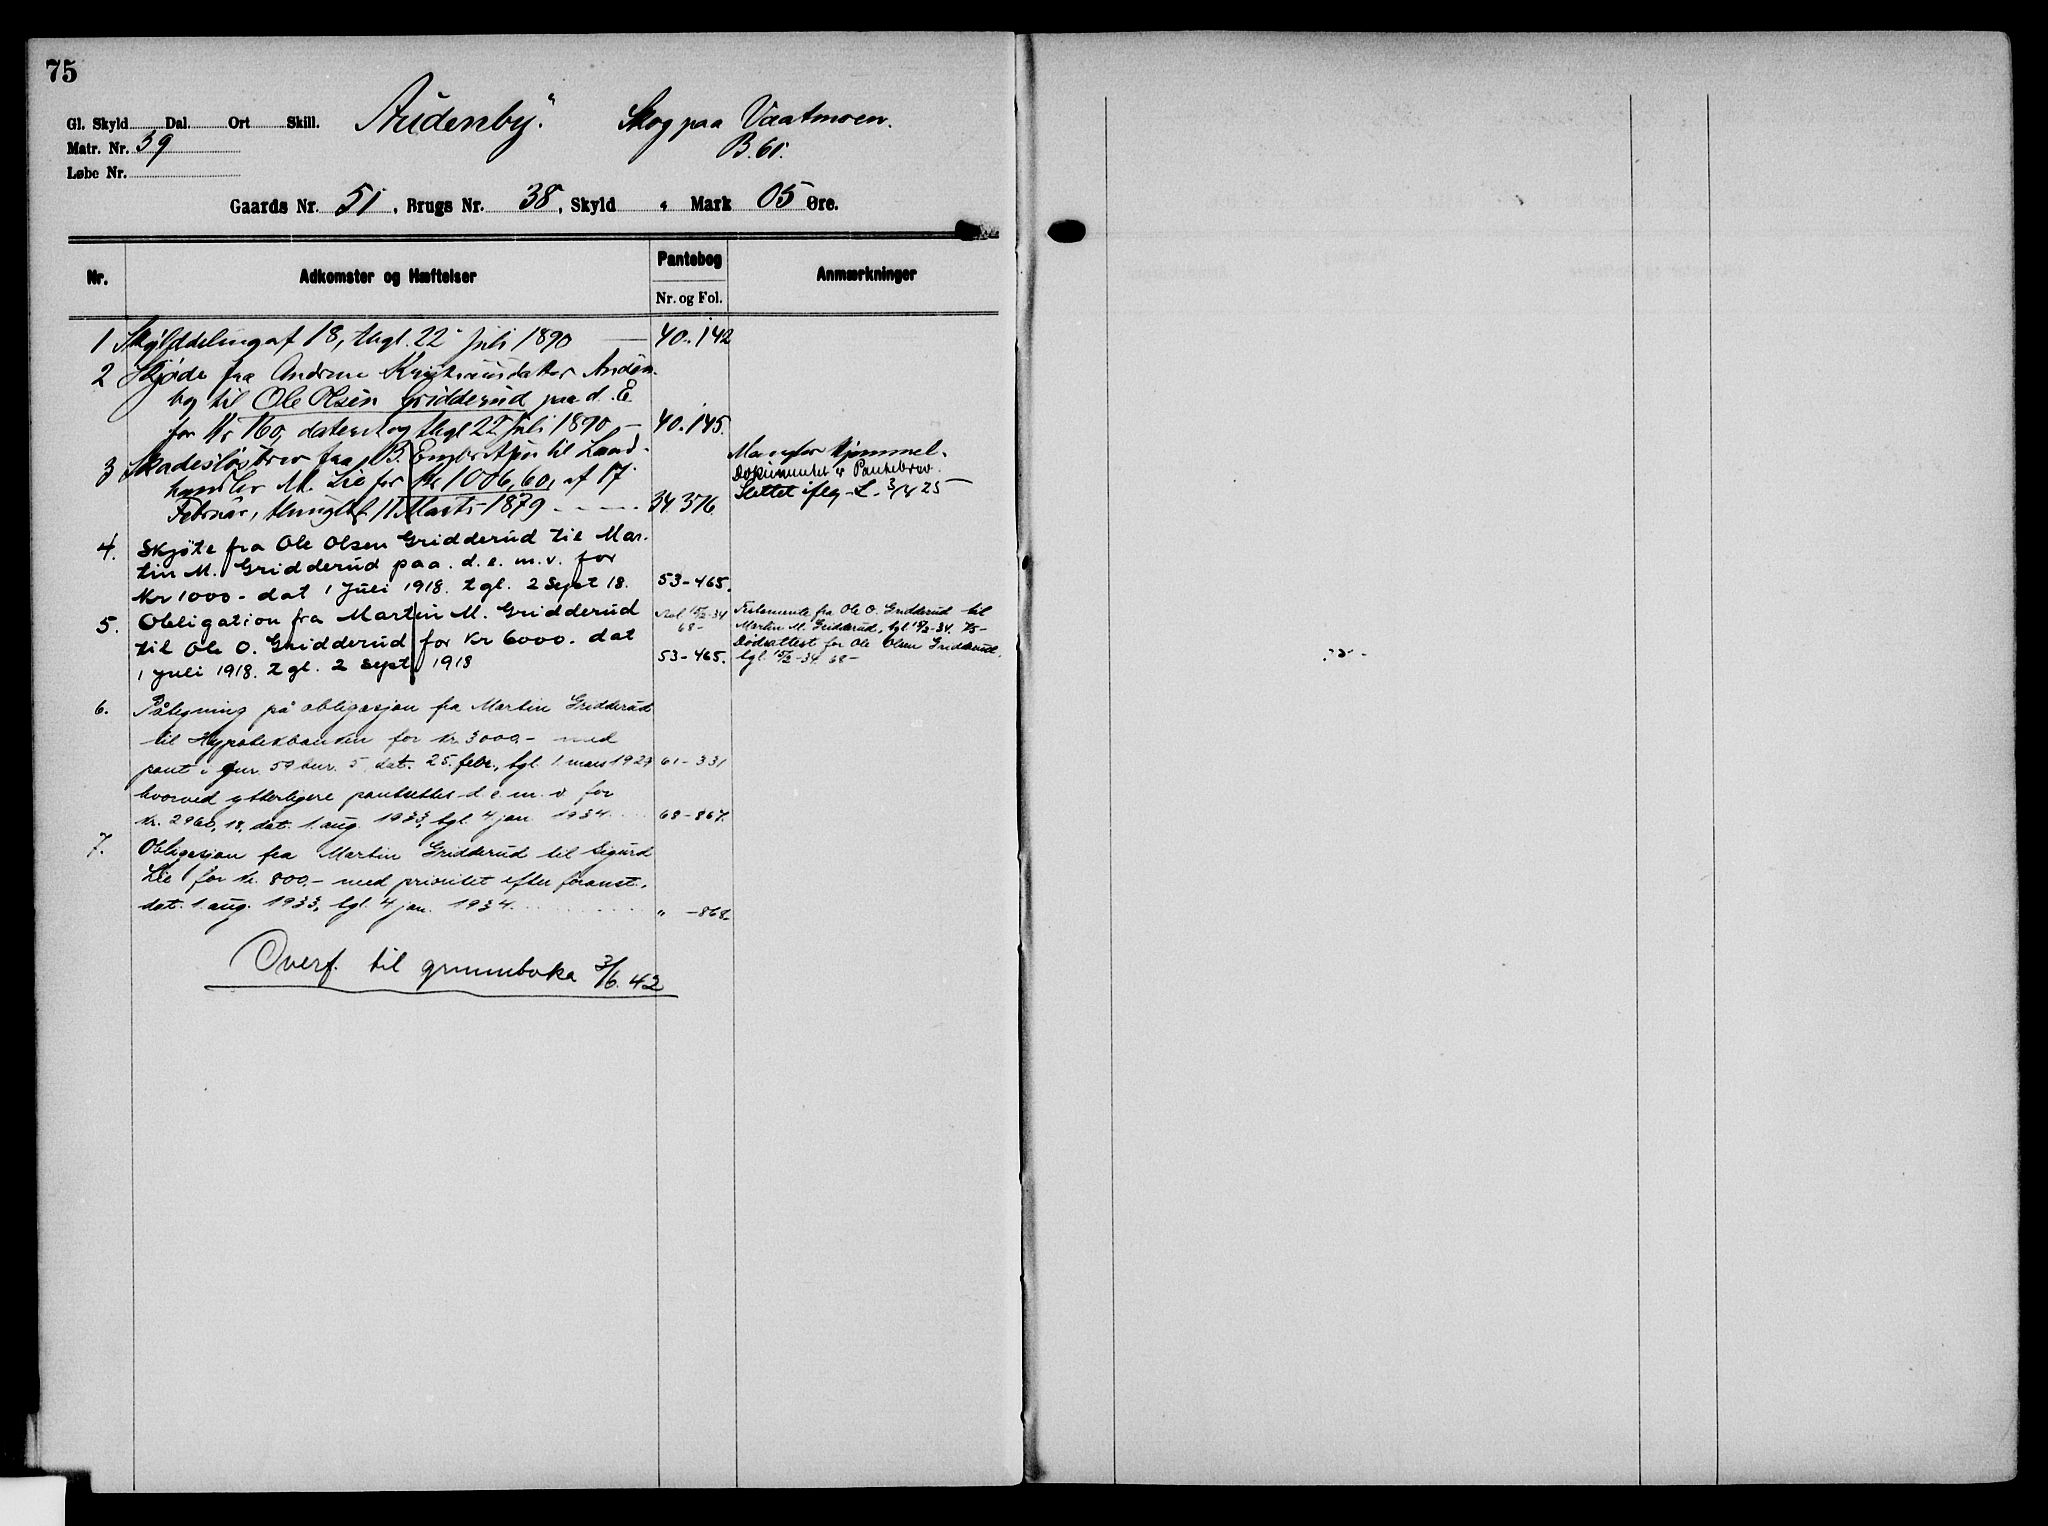 75
Gl. Skyld Dal. Ort Skill. Audenby. Skog paa Vaatmoen.
Matr. Nr. 39 B. 61.
Løbe Nr.
Gaards Nr. 51, Brugs Nr. 38, Skyld " Mark 05 Øre.
Nr. Adkomster og Hæftelser Pantebog Nr. og Fol. Anmærkninger
1 Skylddeling af 18, thgl. 22 Juli 1890 40. 142
2 Skjøde fra Andrine datter Auden-
by til Ole Olsen Gridderud paa d. E.
for Kr 160, dateret og thgl 22 Juli 1890 - 40. 145.
3 Skadesløsbrev fra B. til Land-
handler M. Lie for Kr 1006,60, af 17
Februar, thinglæst 11 Marts 1879 34. 376.
Mangler Hjemmel.
Dokumentet er Pantebrev.
Slettet iflg. L. 3/4 25
4. Skjøte fra Ole Olsen Gridderud til Mar-
tin M. Gridderud paa. d. e. m. v. for
Kr 1000 - dat 1 Juli 1918. tgl. 2 Sept 18. 53-465.
5. Obligation fra Martin M. Gridderud
til Ole O. Gridderud for Kr 6000. dat
1 Juli 1918. tgl. 2 Sept 1918 53-465.
Avl 15/2-34
68-
Testamente fra Ole O. Gridderud til
Martin M. Gridderud, tgl 15/2-34. 75-
Dødsattest for Ole Olsen Gridderud,
tgl 15/2-34 68-
6. Påtegning på obligasjon fra Martin Gridderud
til Hypotekbanken for kr. 3000,- med
pant i gnr. 59 bnr. 5, dat. 25. febr., tgl. 1. mars 1927 61-331
hvorved ytterligere pantsettes d. e. m. v. for
kr. 2960,18, dat. 1. aug. 1933, tgl. 4 jan. 1934 68-867.
7. Obligasjon fra Martin Gridderud til Sigurd
Lie for kr. 800,- med prioritet efter foranst.,
dat. 1. aug. 1933, tgl. 4 jan. 1934. " -868.
Overf. til grunnboka 3/6. 42